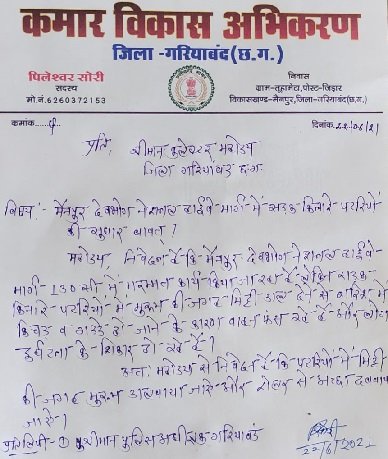 कमार विकास अभिकरण
जिला -गरियाबंद(छ.ग.)
पिलेश्वर सोरी
सदस्य
मो.नं.6260372153
निवास
ग्राम-तुहामेटा,पोस्ट-जिड़ार
विकासखण्ड-मैनपुर,जिला-गरियाबंद(छ.ग.)
कमांक.....
दिनांक.22/06/21
प्रति,
श्रीमान कलेक्टर महोदय
जिला गरियाबंद छ.ग.
विषय :- मैनपुर देवभोग नेशनल हाईवे मार्ग में सड़क किनारे पटरियों
की सुधार बाबत्।
महोदय, निवेदन है कि मैनपुर देवभोग नेशनल हाईवे
मार्ग 130 सी में कार्य किया जा रहा है लेकिन सड़क
किनारे पटरियों में मुरूम की जगह मिट्टी डाल देने से बारिश में
किचड़ व गड्ढे हो जाने के कारण वाहन फंस रहे है और लोग
दुर्घटना के शिकार हो रहे है।
अतः महोदय से निवेदन है कि पटरियों में मिट्टी
की जगह मुरूम डलवाया जाये और रोलर से अच्छा दबवाया
जाये।
प्रतिलिपी - ① श्रीमान पुलिस अधीक्षक गरियाबंद
22/6/2021